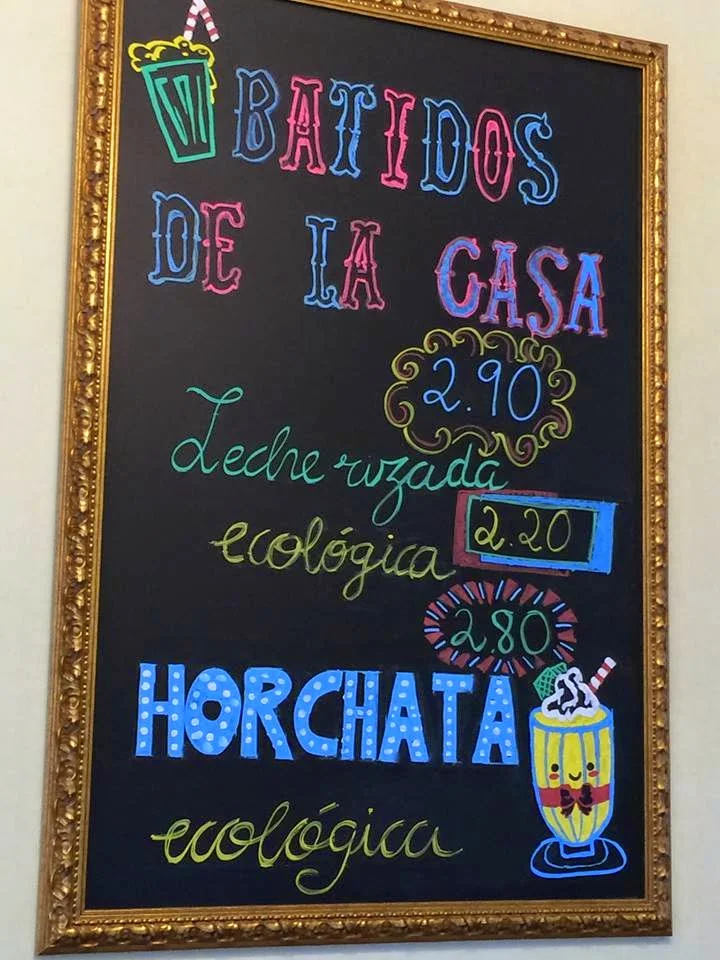 BATIDOS
DE LA CASA
2.90
Leche rizada
ecológica 2.20
2.80
HORCHATA
ecológica